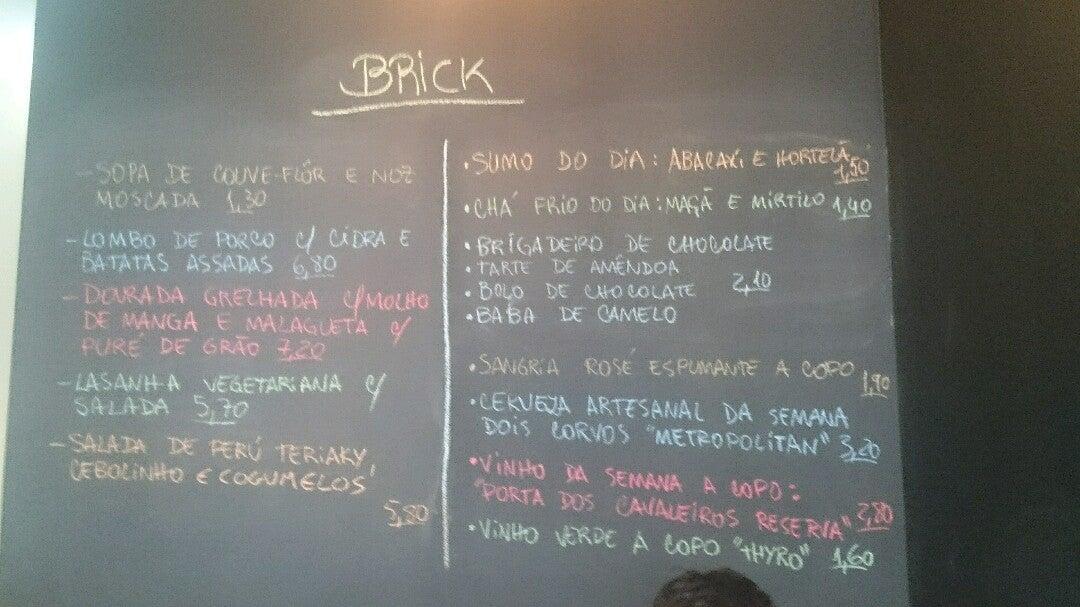 BRICK
- SOPA DE COUVE-FLÔR E NOZ
MOSCADA 1,30
- LOMBO DE PORCO C/ CIDRA E
BATATAS ASSADAS 6,80
- DOURADA GRELHADA C/ MOLHO
DE MANGA E MALAGUETA C/
PURÉ DE GRÃO 7,20
- LASANHA VEGETARIANA C/
SALADA 5,70
- SALADA DE PERÚ TERIAKY,
CEBOLINHO E COGUMELOS
5,80
• SUMO DO DIA: ABACAXI E HORTELÃ
1,50
• CHÁ FRIO DO DIA: MAÇÃ E MIRTILO 1,40
• BRIGADEIRO DE CHOCOLATE
• TARTE DE AMÊNDOA
• BOLO DE CHOCOLATE 2,10
• BABA DE CAMELO
• SANGRIA ROSÉ ESPUMANTE A COPO
1,90
• CERVEJA ARTESANAL DA SEMANA
DOIS CORVOS "METROPOLITAN" 3,20
• VINHO DA SEMANA A COPO:
"PORTA DOS CAVALEIROS RESERVA" 2,80
• VINHO VERDE A COPO "THYRO" 1,60